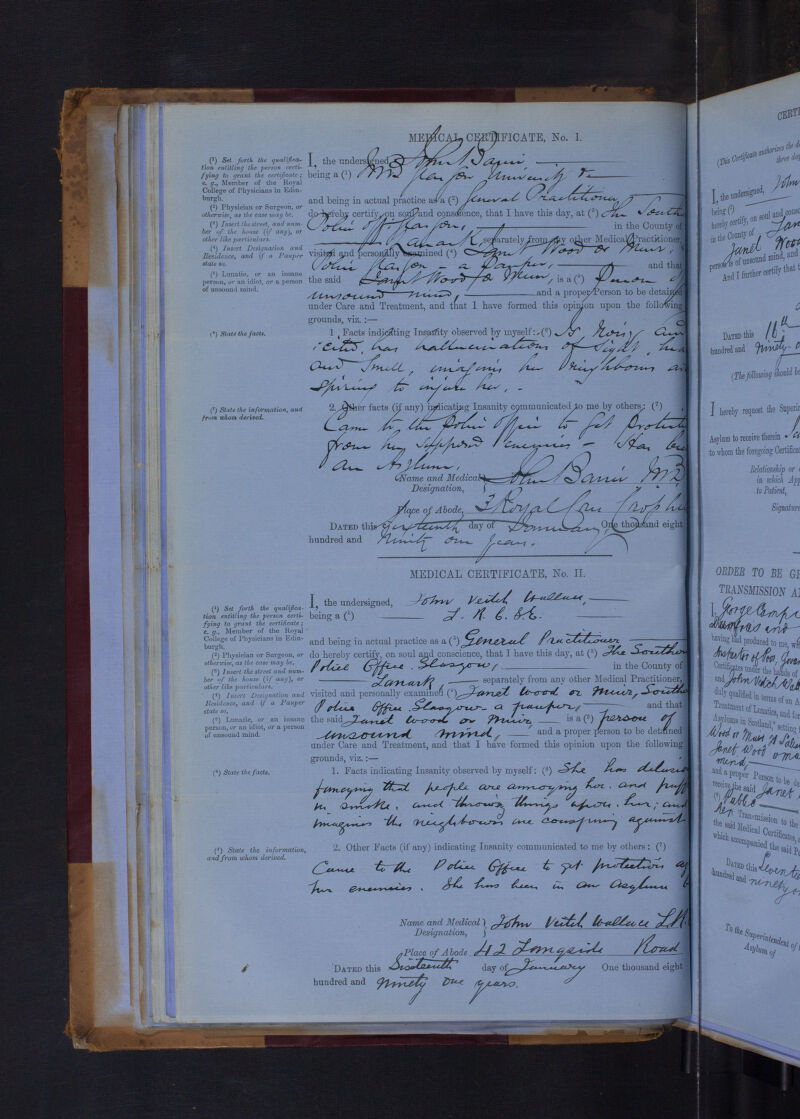 MEDICAL CERTIFICATE, No. I.
(¹) Set forth the qualifica-
tion entitling the person certi-
fying to grant the certificate;
e. g., Member of the Royal
College of Physicians in Edin-
burgh.
(²) Physician or Surgeon, or
otherwise, as the case may be.
(³) Insert the street, and num-
ber of the house (if any), or
other like particulars.
(⁴) Insert Designation and
Residence, and if a Pauper
state so.
(⁵) Lunatic, or an insane
person, or an idiot, or a person
of unsound mind.
I, the undersigned, John Barrie
being a (¹) M B Glasgow University &
and being in actual practice as a (²) General Practitioner
do hereby certify, on soul and conscience, that I have this day, at (³) the South
Police Off. Glasgow, in the County of
Lanark, separately from any other Medical Practitioner,
visited and personally examined (⁴) Janet Wood or Muir,
Police Glasgow - a Pauper, and that
the said Janet Wood or Muir, is a (⁵) Person of
unsound mind, and a proper Person to be detained
under Care and Treatment, and that I have formed this opinion upon the following
grounds, viz.:—
(⁶) State the facts.
1. Facts indicating Insanity observed by myself: (⁶) Is Noisy and
excited, has hallucinations of Sight, hea
and Smell, imagines her neighbours are
spiring to injure her. -
(⁷) State the information, and
from whom derived.
2. Other facts (if any) indicating Insanity communicated to me by others: (⁷)
Came to the Police Office to get protection
from her supposed enemies - Has been
an Asylum.
Name and Medical Designation, John Barrie MB
Place of Abode, 3 Royal Cres Crosshill
DATED this Sixteenth day of January One thousand eight
hundred and Ninety one years.
MEDICAL CERTIFICATE, No. II.
(¹) Set forth the qualifica-
tion entitling the person certi-
fying to grant the certificate;
e. g., Member of the Royal
College of Physicians in Edin-
burgh.
(²) Physician or Surgeon, or
otherwise, as the case may be.
(³) Insert the street and num-
ber of the house (if any), or
other like particulars.
(⁴) Insert Designation and
Residence, and if a Pauper
state so.
(⁵) Lunatic, or an insane
person, or an idiot, or a person
of unsound mind.
I, the undersigned, John Veitch Wallace,
being a (¹) L. R. C. S E.
and being in actual practice as a (²) General Practitioner
do hereby certify, on soul and conscience, that I have this day, at (³) The Southern
Police Office. Glasgow, in the County of
Lanark, separately from any other Medical Practitioner,
visited and personally examined (⁴) Janet Wood or Muir, Southe
Police Office Glasgow - a pauper, and that
the said Janet Wood or Muir is a (⁵) person of
unsound mind, and a proper person to be detained
under Care and Treatment, and that I have formed this opinion upon the following
grounds, viz.:—
(⁶) State the facts.
1. Facts indicating Insanity observed by myself: (⁶) She has delusio
fancying that people are annoying her. and puff
in smoke. and throwing things upon her; and
imagines the neighbours are conspiring against
(⁷) State the information,
and from whom derived.
2. Other Facts (if any) indicating Insanity communicated to me by others: (⁷)
Came to the Police Office to get protection ag
her enemies. She has been in an asylum b
Name and Medical Designation, John Veitch Wallace L.R.
Place of Abode 42 Langside Road
DATED this Sixteenth day of January One thousand eight
hundred and ninety one years.
CERTI
(This Certificate authorises the de
three day
I, the undersigned, John
being (¹)
hereby certify, on soul and consc
in the County of Lan
Janet Wood
person is of unsound mind, and
And I further certify that
DATED this 16th
hundred and ninety - o
(The following should be
I hereby request the Superin
Asylum to receive therein
to whom the foregoing Certificat
Relationship or
in which App
to Patient,
Signature
ORDER TO BE GI
TRANSMISSION A
I, George Campbe
Dumfries and
having had produced to me, wi
Inspector of Poor, Gova
Certificates under the hands of
and John Veitch Wall
duly qualified in terms of an A
Treatment of Lunatics, and for
Asylums in Scotland," setting
Janet Wood or Mu
mind,
and a proper Person to be de
receive the said Janet
Transmission to the
the said Medical Certificates,
which accompanied the said Pe
DATED this Seventee
hundred and ninety o
To the Superintendent of
Asylum of